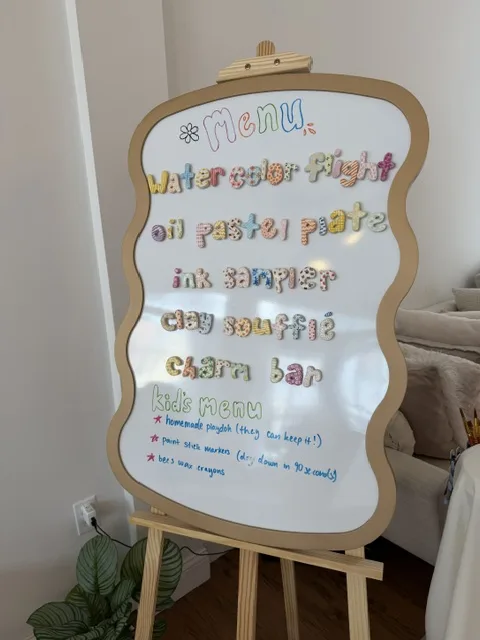 Menu
water color flight
oil pastel plate
ink sampler
clay soufflé
charm bar
kid's menu
homemade playdoh (they can keep it!)
paint stick markers (dry down in 90 seconds)
bees wax crayons